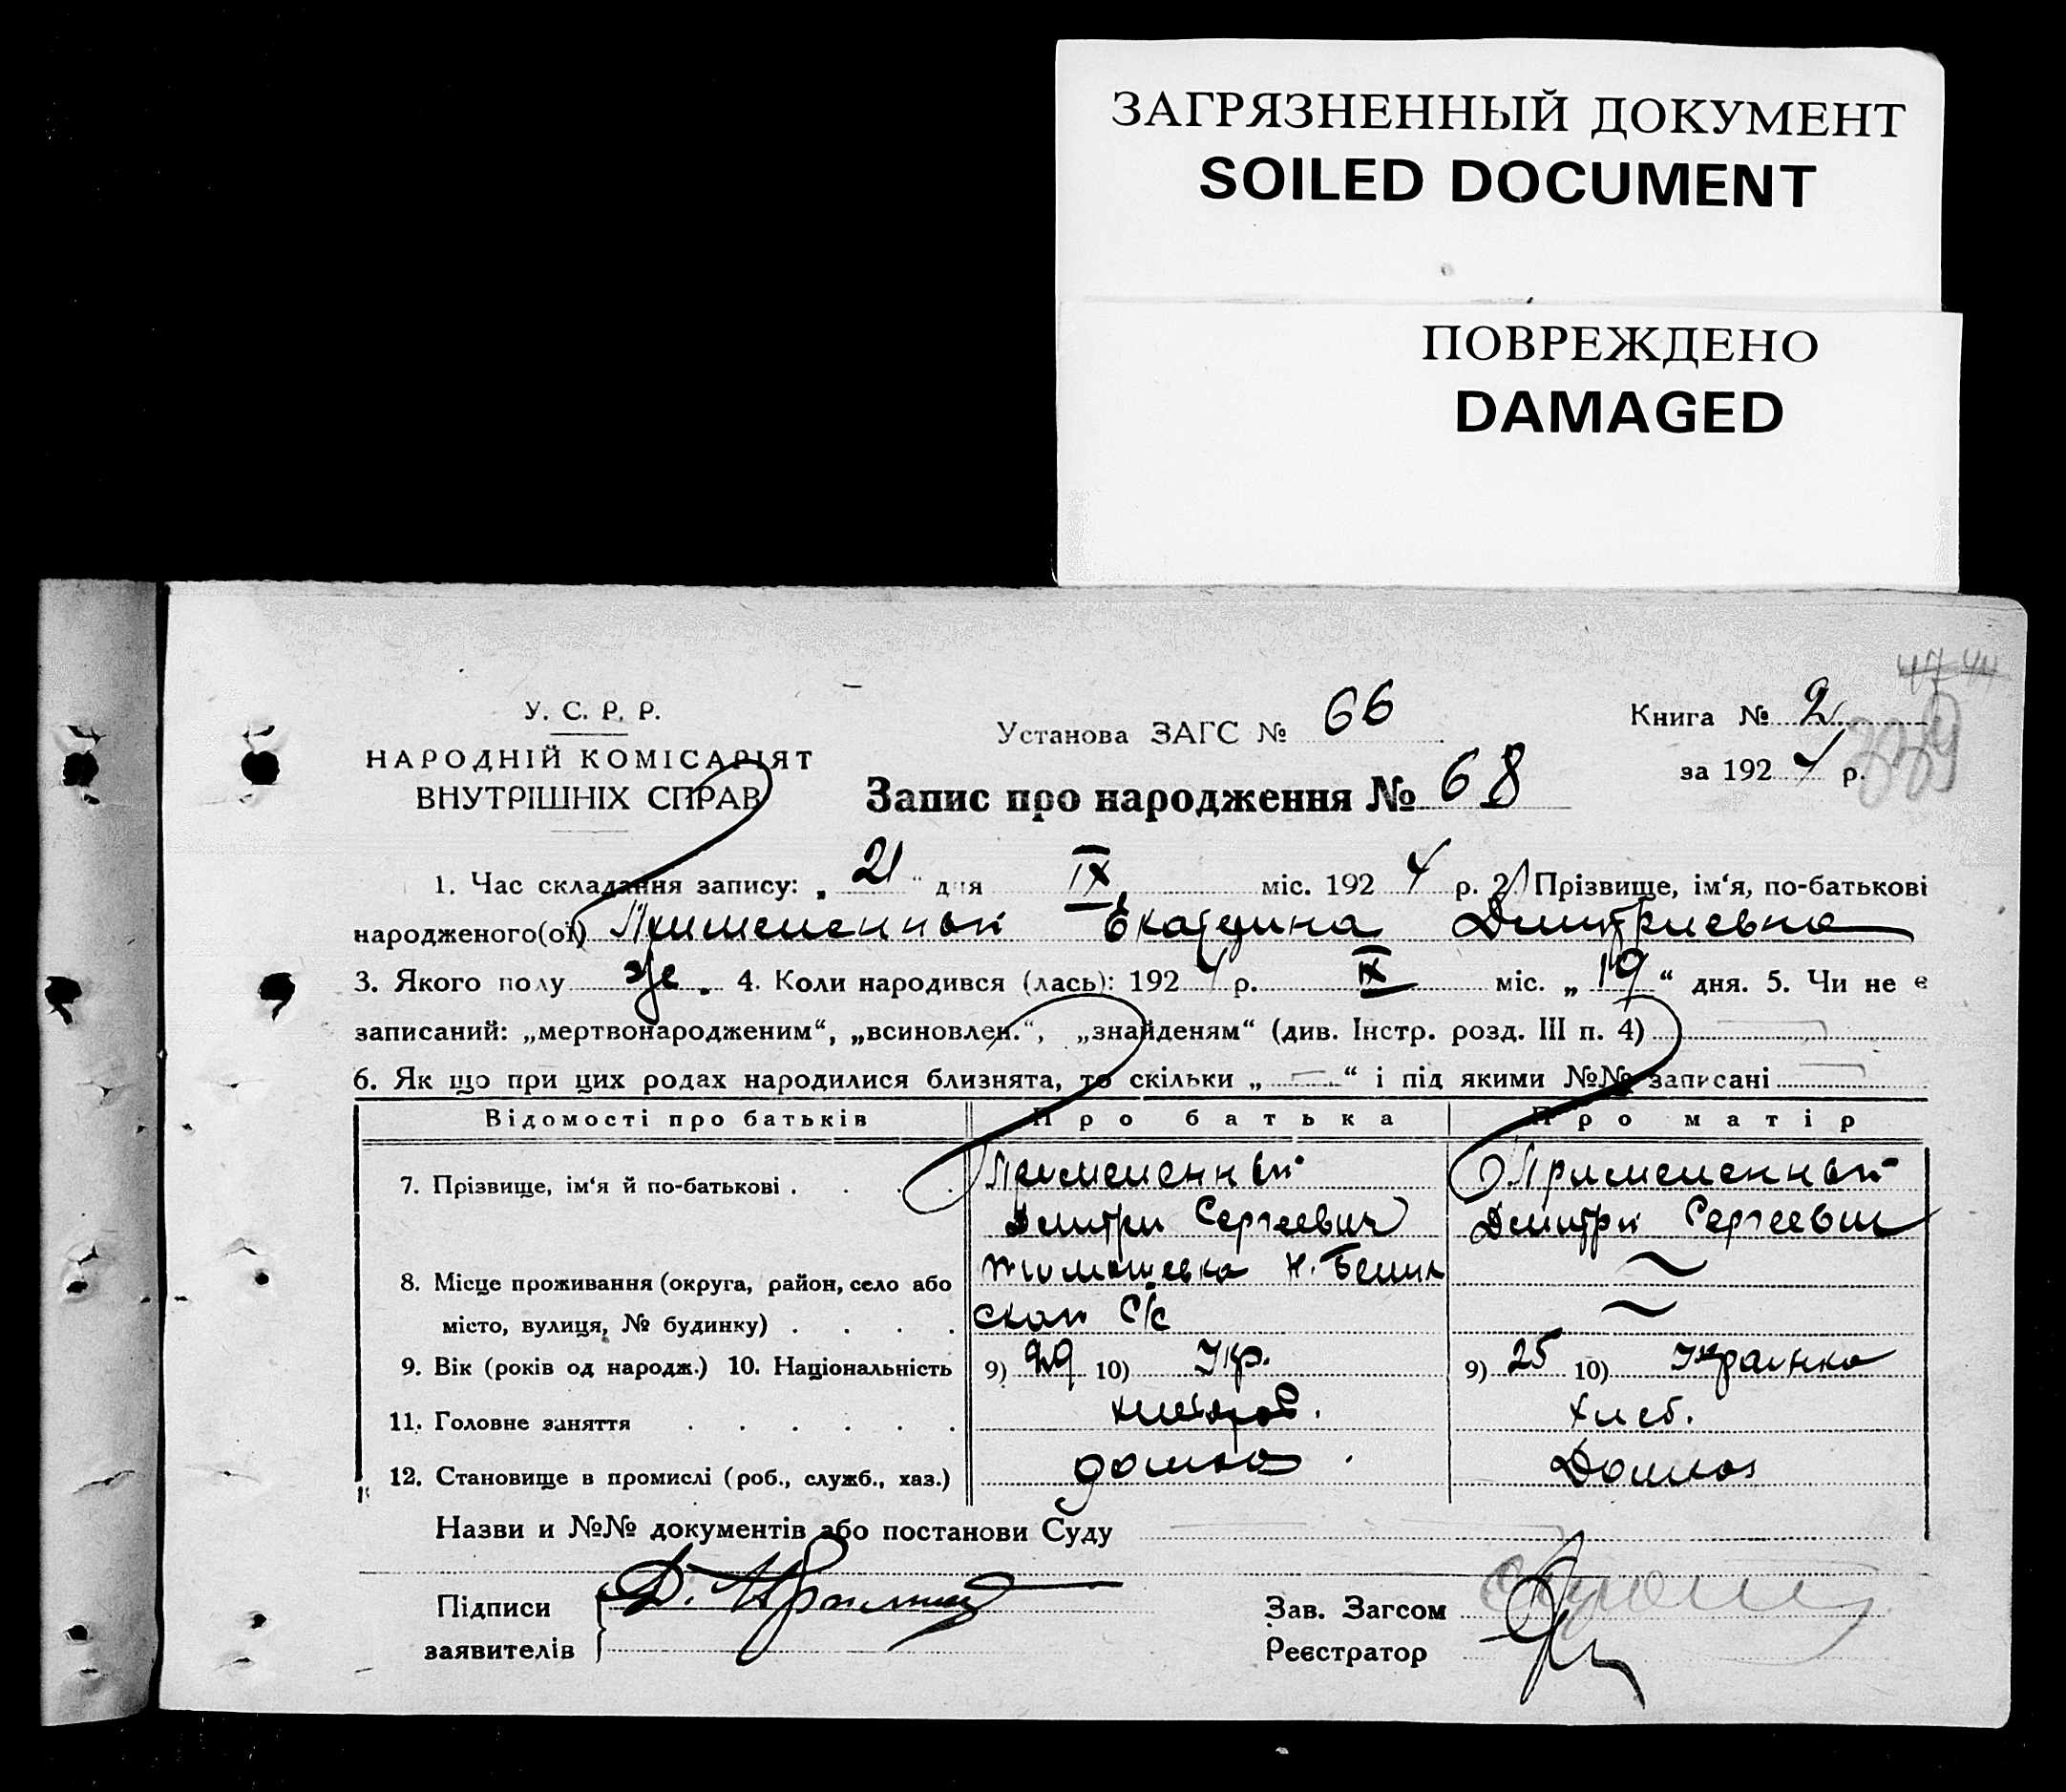 ЗАГРЯЗНЕННЫЙ ДОКУМЕНТ
SOILED DOCUMENT
ПОВРЕЖДЕНО
DAMAGED
47 44
339
У. С. Р. Р.
НАРОДНІЙ КОМІСАРІЯТ
ВНУТРІШНІХ СПРАВ
Установа ЗАГС № 66
Книга № 2
за 1924 р.
Запис про народження № 68
1. Час складання запису: „ 21 " дня IX міс. 1924 р. 2. Прізвище, ім‘я, по-батькові
народженого(ої) Екатерина Дмитриевна
3. Якого полу же. 4. Коли народився (лась): 1924 р. IX міс. „ 19 “ дня. 5. Чи не є
записаний: „мертвонародженим“, „всиновлен.“, „знайденям“ (див. Інстр. розд. III п. 4)
6. Як що при цих родах народилися близнята, то скільки „ — “ і під якими №№ записані —
Відомості про батьків Про батька Про матір
7. Прізвище, ім‘я й по-батькові .
Дмитри Сергеевич Дмитри Сергеевич
8. Місце проживання (округа, район, село або
місто, вулиця, № будинку) . . . . ской С/с
9. Вік (років од народж.) 10. Національність 9) 29 10) Укр. 9) 25 10) Украинка
11. Головне заняття . . . . . . хлебороб. хлеб.
12. Становище в промислі (роб., служб., хаз.)
Назви и №№ документів або постанови Суду
Підписи
заявителів
Зав. Загсом
Реєстратор